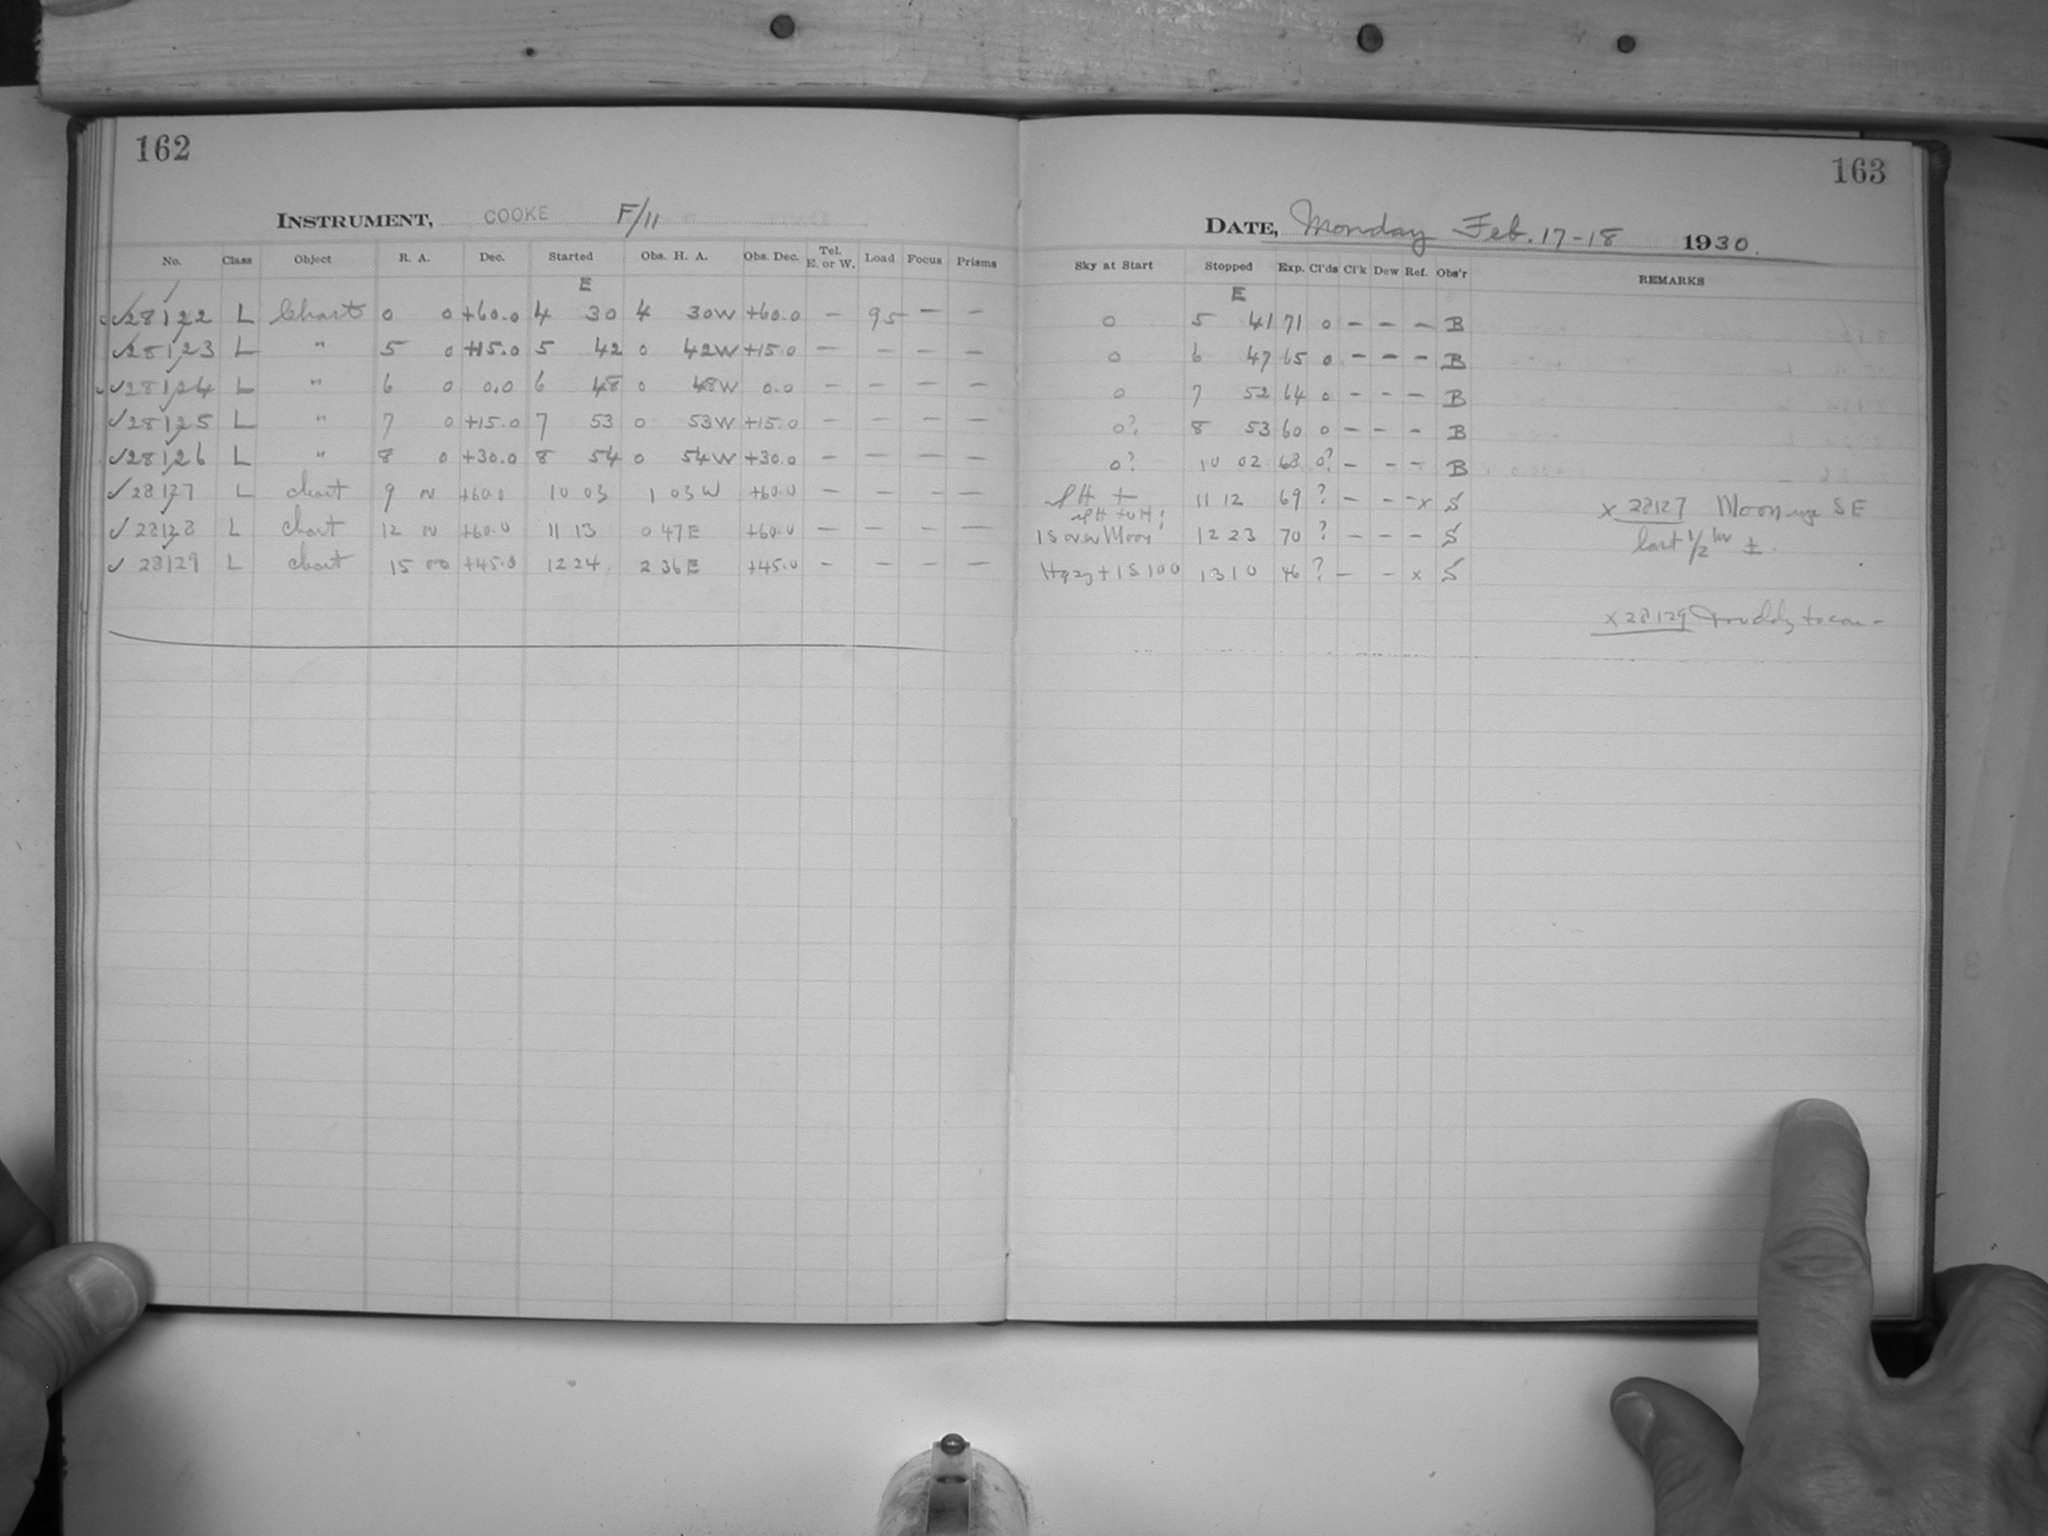 162
INSTRUMENT, COOKE F/11
No. Class Object R. A. Dec. Started Obs. H. A. Obs. Dec. Tel. E. or W. Load Focus Prisms
E
✓28122 L Chart 0 0 +60.0 4 30 4 30W +60.0 – 95 – –
✓28123 L " 5 0 +15.0 5 42 0 42W +15.0 – – – –
✓28124 L " 6 0 0.0 6 48 0 48W 0.0 – – – –
✓28125 L " 7 0 +15.0 7 53 0 53W +15.0 – – – –
✓28126 L " 8 0 +30.0 8 54 0 54W +30.0 – – – –
✓28127 L chart 9 +60.0 10 03 1 03W +60.0 – – – –
✓28128 L chart 12 +60.0 11 13 0 47E +60.0 – – – –
✓28129 L chart 15 00 +45.0 12 24 2 36E +45.0 – – – –
163
DATE, Monday Feb. 17-18 1930.
Sky at Start Stopped Exp. Cl'ds Cl'k Dew Ref. Obs'r REMARKS
E
0 5 41 71 0 – – – B
0 6 47 65 0 – – – B
0 7 52 64 0 – – – B
0? 8 53 60 0 – – – B
0? 10 02 68 0? – – – B
11 12 69 ? – – –x S x 28127 Moon SE
15 over Moon 12 23 70 ? – – – S last 1/2 hr ±.
Hazy + 15 100 13 10 46 ? – – x S
x 28129